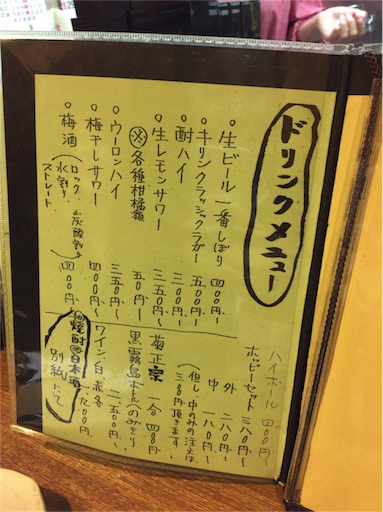 ドリンクメニュー
○生ビール一番しぼり 四〇〇円〜
○キリンクラッシックラガー 五〇〇円〜
○酎ハイ 三〇〇円〜
○生レモンサワー 三五〇円〜
※各種柑橘類 五〇円〜
○ウーロンハイ 三五〇円〜
○梅干しサワー 四〇〇円〜
○梅酒(ロック 炭酸割り 四〇〇円〜
水割り
ストレート
ハイボール 四〇〇円〜
ホッピーセット 三八〇円〜
外 二八〇円〜
中 一八〇円〜
(但し、中のみの注文は
三〇〇円頂きます。)
菊正宗 一合 四〇〇円〜
黒霧島ボトル(のみきり
二、五〇〇円〜
ワイン 白 赤 各
焼酎 日本酒
別紙にて